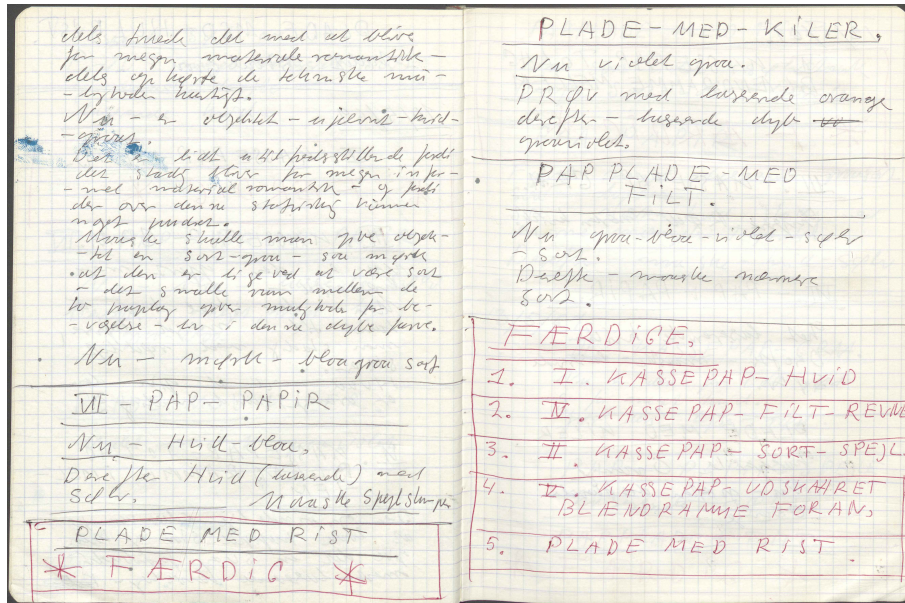 dels truede det med at blive
for megen materiale romantik -
dels ophørte de tekniske mu-
-ligheder hurtigt.
Nu - er objektet - ujævnt - hvid-
-gråt.
Det er lidt utilfredsstillende fordi
det stadig for megen infor-
-mel material romantik - og fordi
der over denne
noget pudret.
Måske skulle man give objek-
-tet en sort-grå - så mørk
at den er lige ved at være sort
- det smalle rum mellem de
to paplag giver mulighed for be-
-vægelse - i denne dybe farve.
Nu - mørk - blågrå sort
VI - PAP - PAPIR
Nu - Hvid - blå.
Derefter Hvid (laserende) med
Sølv. Måske Spejlstumper
PLADE MED RIST
* FÆRDIG *
PLADE-MED-KILER.
Nu violet grå.
PRØV med laserende orange
derefter - laserende dyb
gråviolet.
PAP PLADE-MED
FILT.
Nu grå-blå-violet-sølv
- sort.
Derefter - måske nærmere
sort.
FÆRDIGE.
1. I. KASSEPAP-HVID
2. IV. KASSEPAP-FILT-REVNE
3. II. KASSEPAP-SORT-SPEJL.
4. V. KASSEPAP-UDSKAARET
BLÆNDRAMME FORAN.
5. PLADE MED RIST